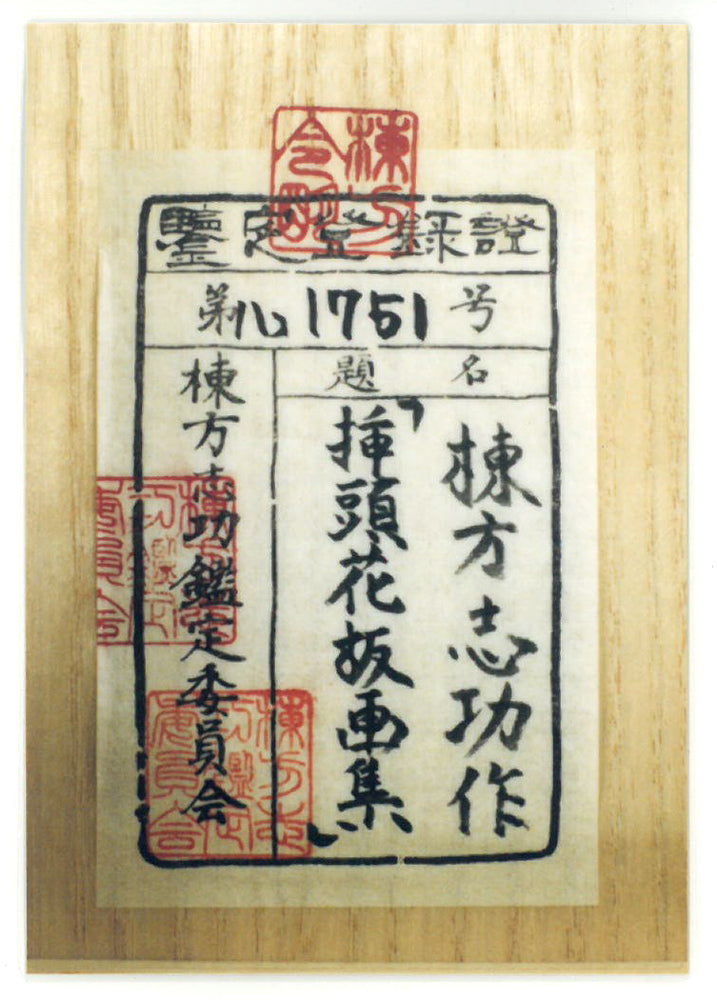 鑒定登録證
第 1751 号
題名
棟方志功作
「挿頭花板画集」
棟方志功鑑定委員会
棟方志功鑑定委員会
棟方志功鑑定委員会